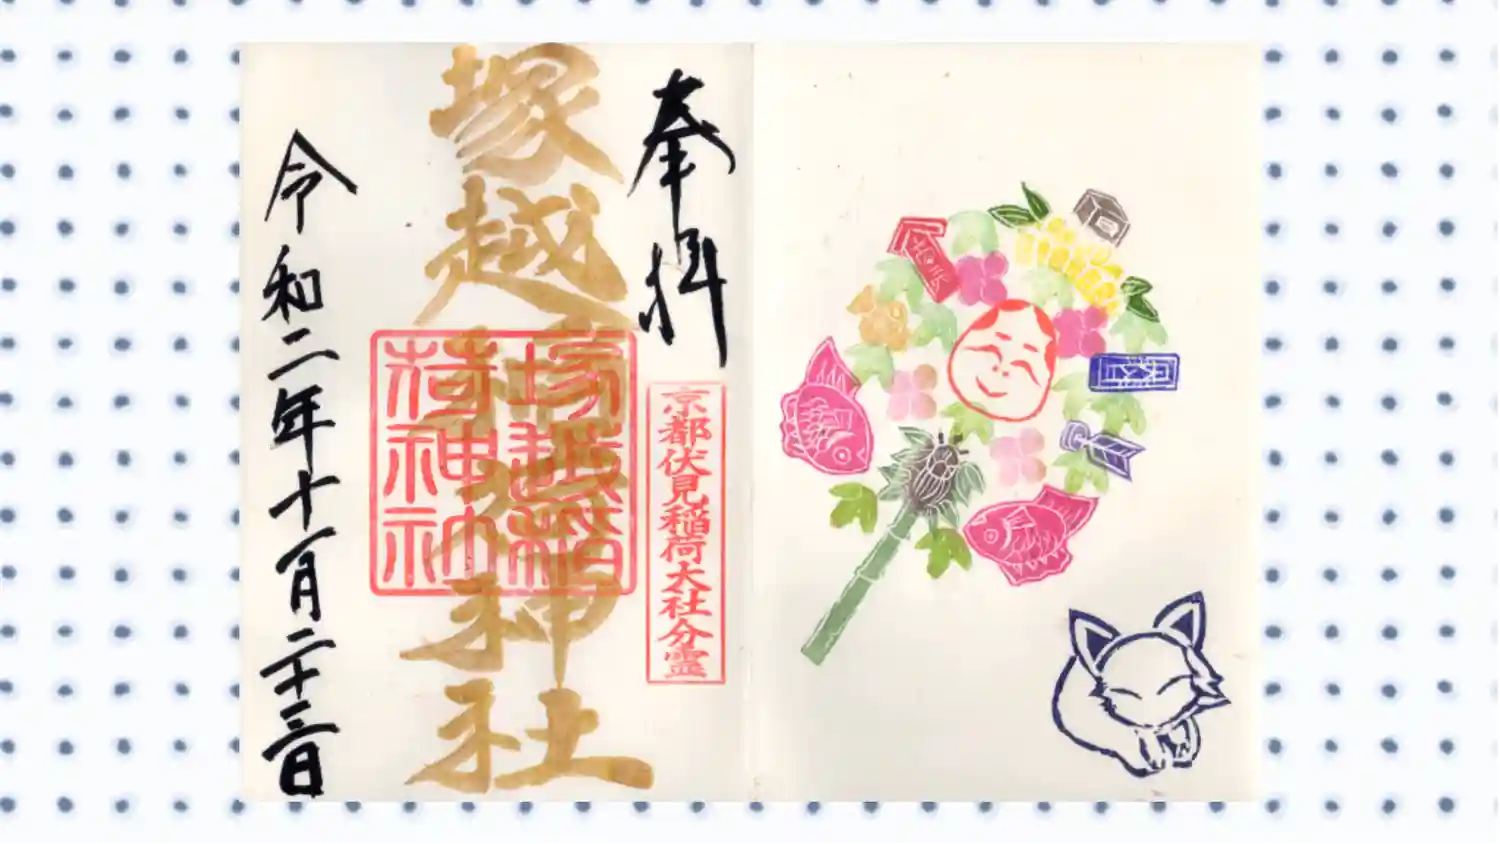 奉拝
京都伏見稲荷大社分霊
塚越稲荷神社
塚越稲
荷神社
令和二年十一月二十三日